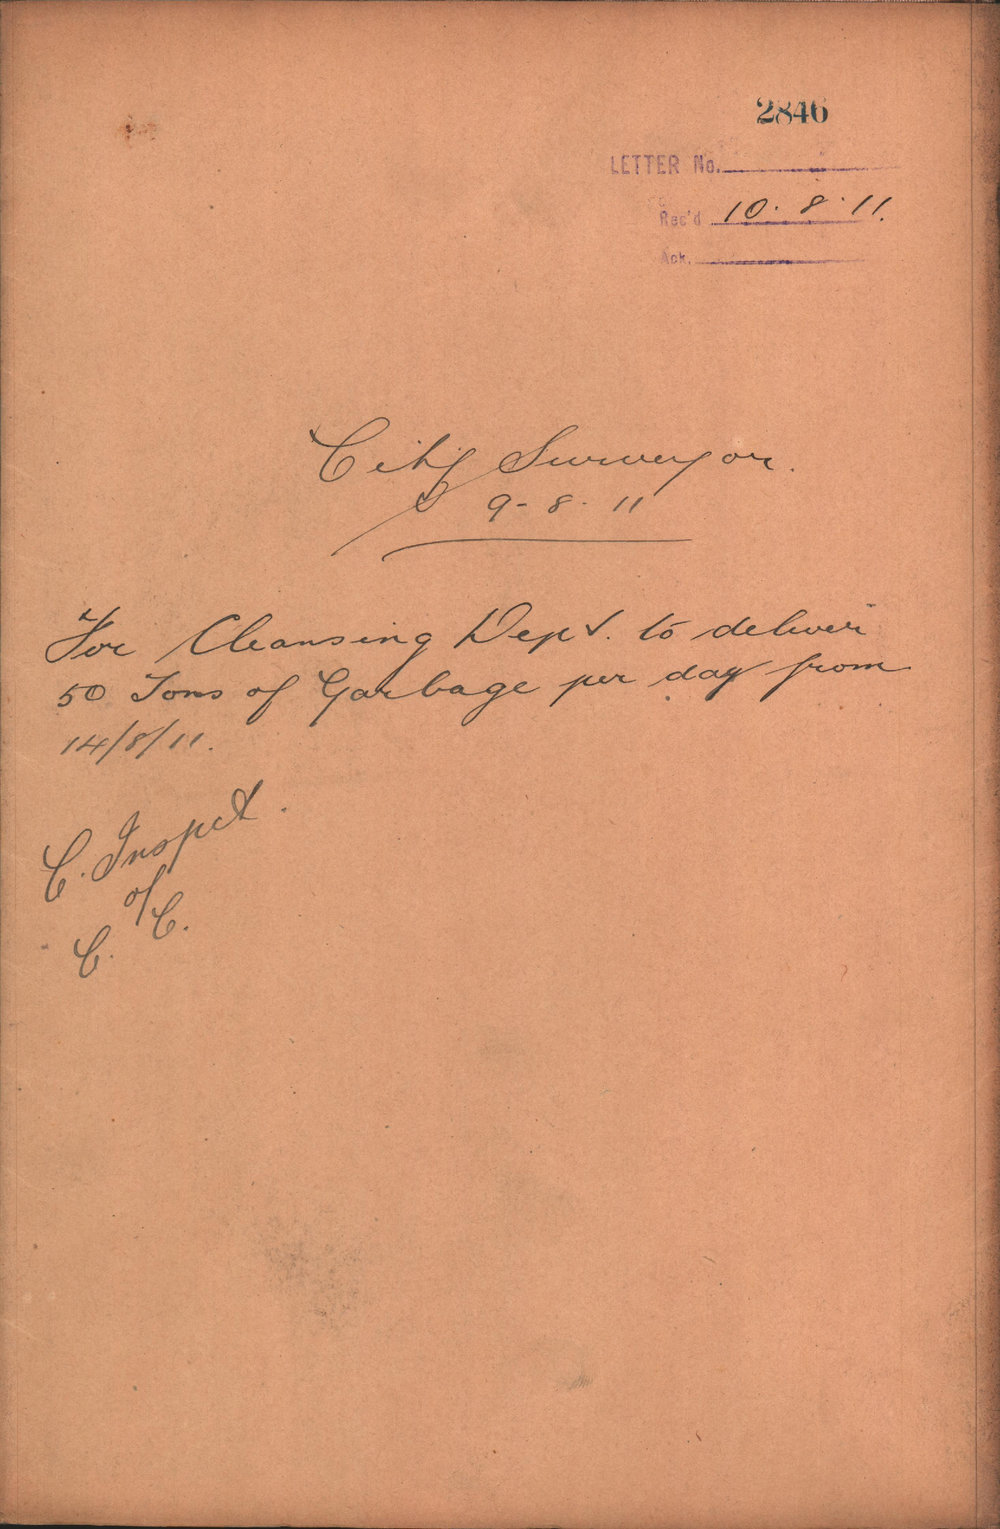 2846
LETTER No.
Rec'd 10.8.11.
Ack.
City Surveyor.
9-8-11
For Cleansing Dept. to deliver
50 Tons of Garbage per day from
14/8/11.
C. Inspect.
of
C. C.